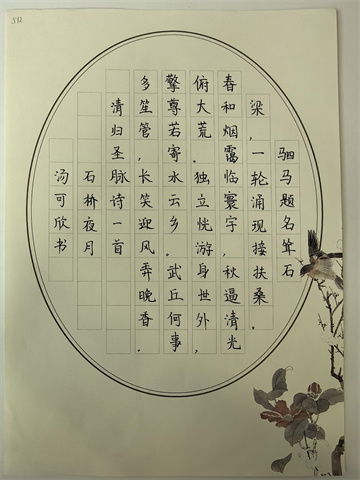 驷马题名耸石
梁，一轮涌现接扶桑。
春和烟霭临寰宇，秋逼清光
俯大荒。独立恍游身世外，
擎尊若寄水云乡。武丘何事
多笙管，长笑迎风弄晚香.
清归圣脉诗一首
石桥夜月
汤可欣书